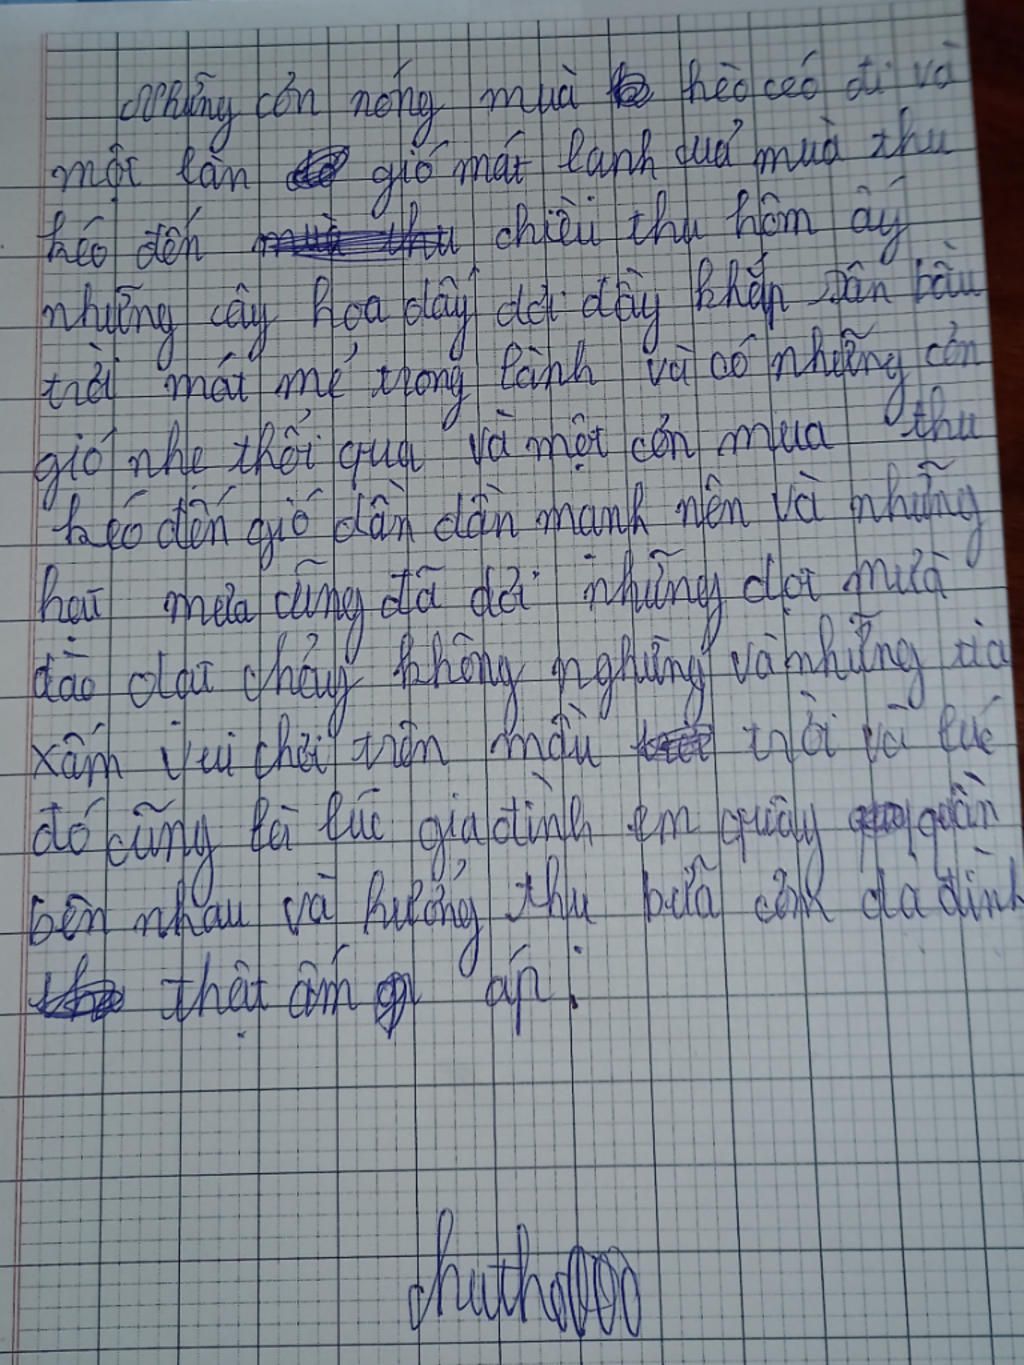 Những cơn nóng muà hè céo đi và
một làn gió mát lanh quả muà thu
kéo đến chiều thu hôm ấy
những cây hoa dấy dơi đầy khắp sân bầu
trời mát mẻ trong lành và có những cơn
gió nhẹ thổi qua và một cơn mua thu
kéo đến gió dần dần manh nên và những
hạt mưa cũng đã dơi những dọt mưa
dào dạt chảy không nghững và những tia
xấm vui chơi trên mầu trời và lúc
đó cũng là lúc gia đình em quây quần
bên nhau và hưởng thu bữa cơm gia đình
thật ấm áp.